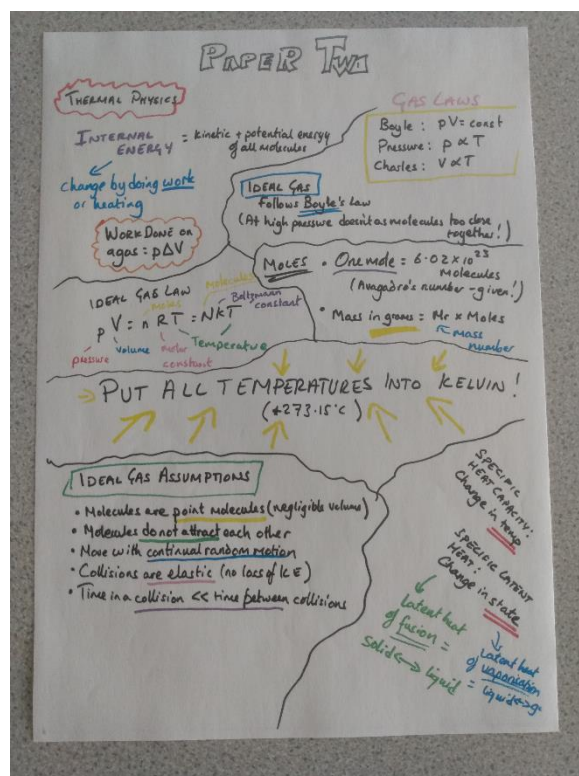 PAPER TWO
THERMAL PHYSICS
INTERNAL ENERGY = kinetic + potential energy
of all molecules
change by doing work
or heating
WORK DONE ON
a gas: pΔV
GAS LAWS
Boyle: pV = const
Pressure: p ∝ T
Charles: V ∝ T
IDEAL GAS
follows Boyle's Law
(At high pressure doesn't as molecules too close
together!)
MOLES • One mole = 6.02 x 10²³
molecules
(Avagadro's number - given!)
• Mass in grams = Mr x Moles
mass
number
IDEAL GAS LAW
moles
molecules
Boltzmann
constant
pV = nRT = NkT
pressure
volume
molar
constant
Temperature
PUT ALL TEMPERATURES INTO KELVIN!
(+273.15°C)
IDEAL GAS ASSUMPTIONS
• Molecules are point molecules (negligible volume)
• Molecules do not attract each other
• Move with continual random motion
• Collisions are elastic (no loss of KE)
• Time in a collision << time between collisions
SPECIFIC
HEAT CAPACITY:
Change in temp
SPECIFIC LATENT
HEAT:
Change in state
latent heat
of fusion =
solid <-> liquid
latent heat
of vaporisation
= liquid <-> g